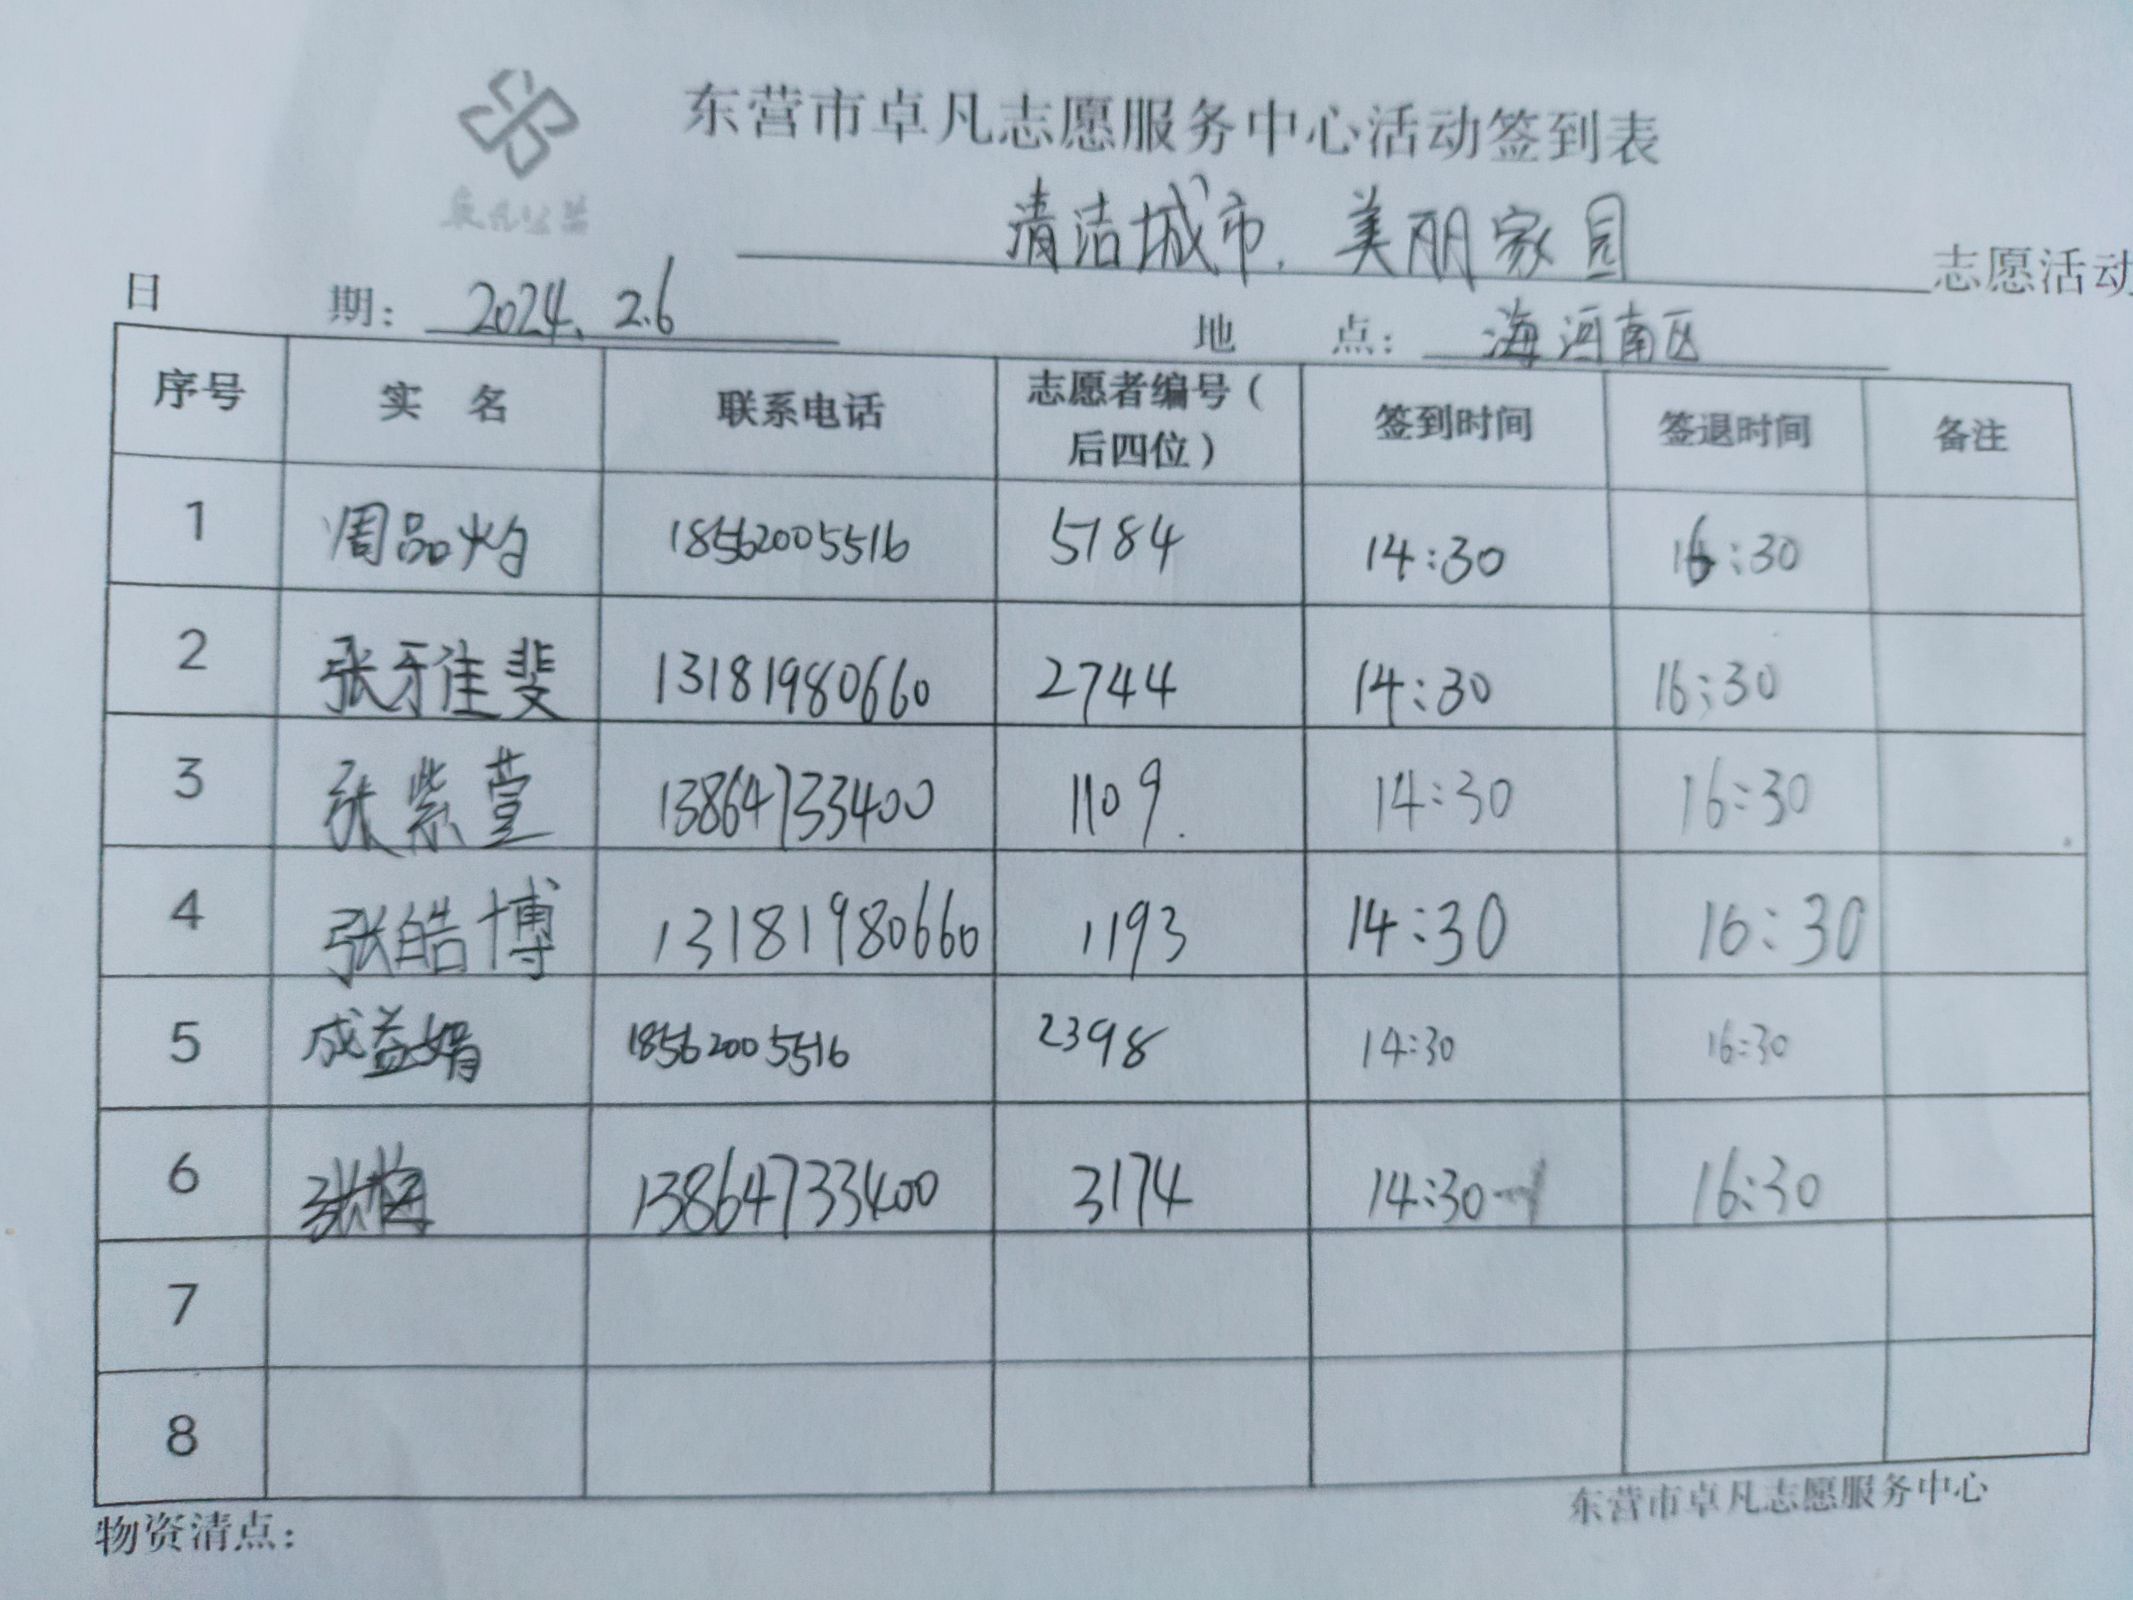 东营市卓凡志愿服务中心活动签到表
卓凡公益
清洁城市.美丽家园 志愿活动
日 期: 2024.2.6 地 点: 海河南区
序号 实 名 联系电话 志愿者编号(后四位) 签到时间 签退时间 备注
1 周品灼 18562005516 5184 14:30 16:30
2 张雅斐 13181980660 2744 14:30 16:30
3 张紫萱 13864733400 1109. 14:30 16:30
4 张皓博 13181980660 1193 14:30 16:30
5 成益娟 18562005516 2398 14:30 16:30
6 张梅 13864733400 3174 14:30 16:30
7
8
东营市卓凡志愿服务中心
物资清点: